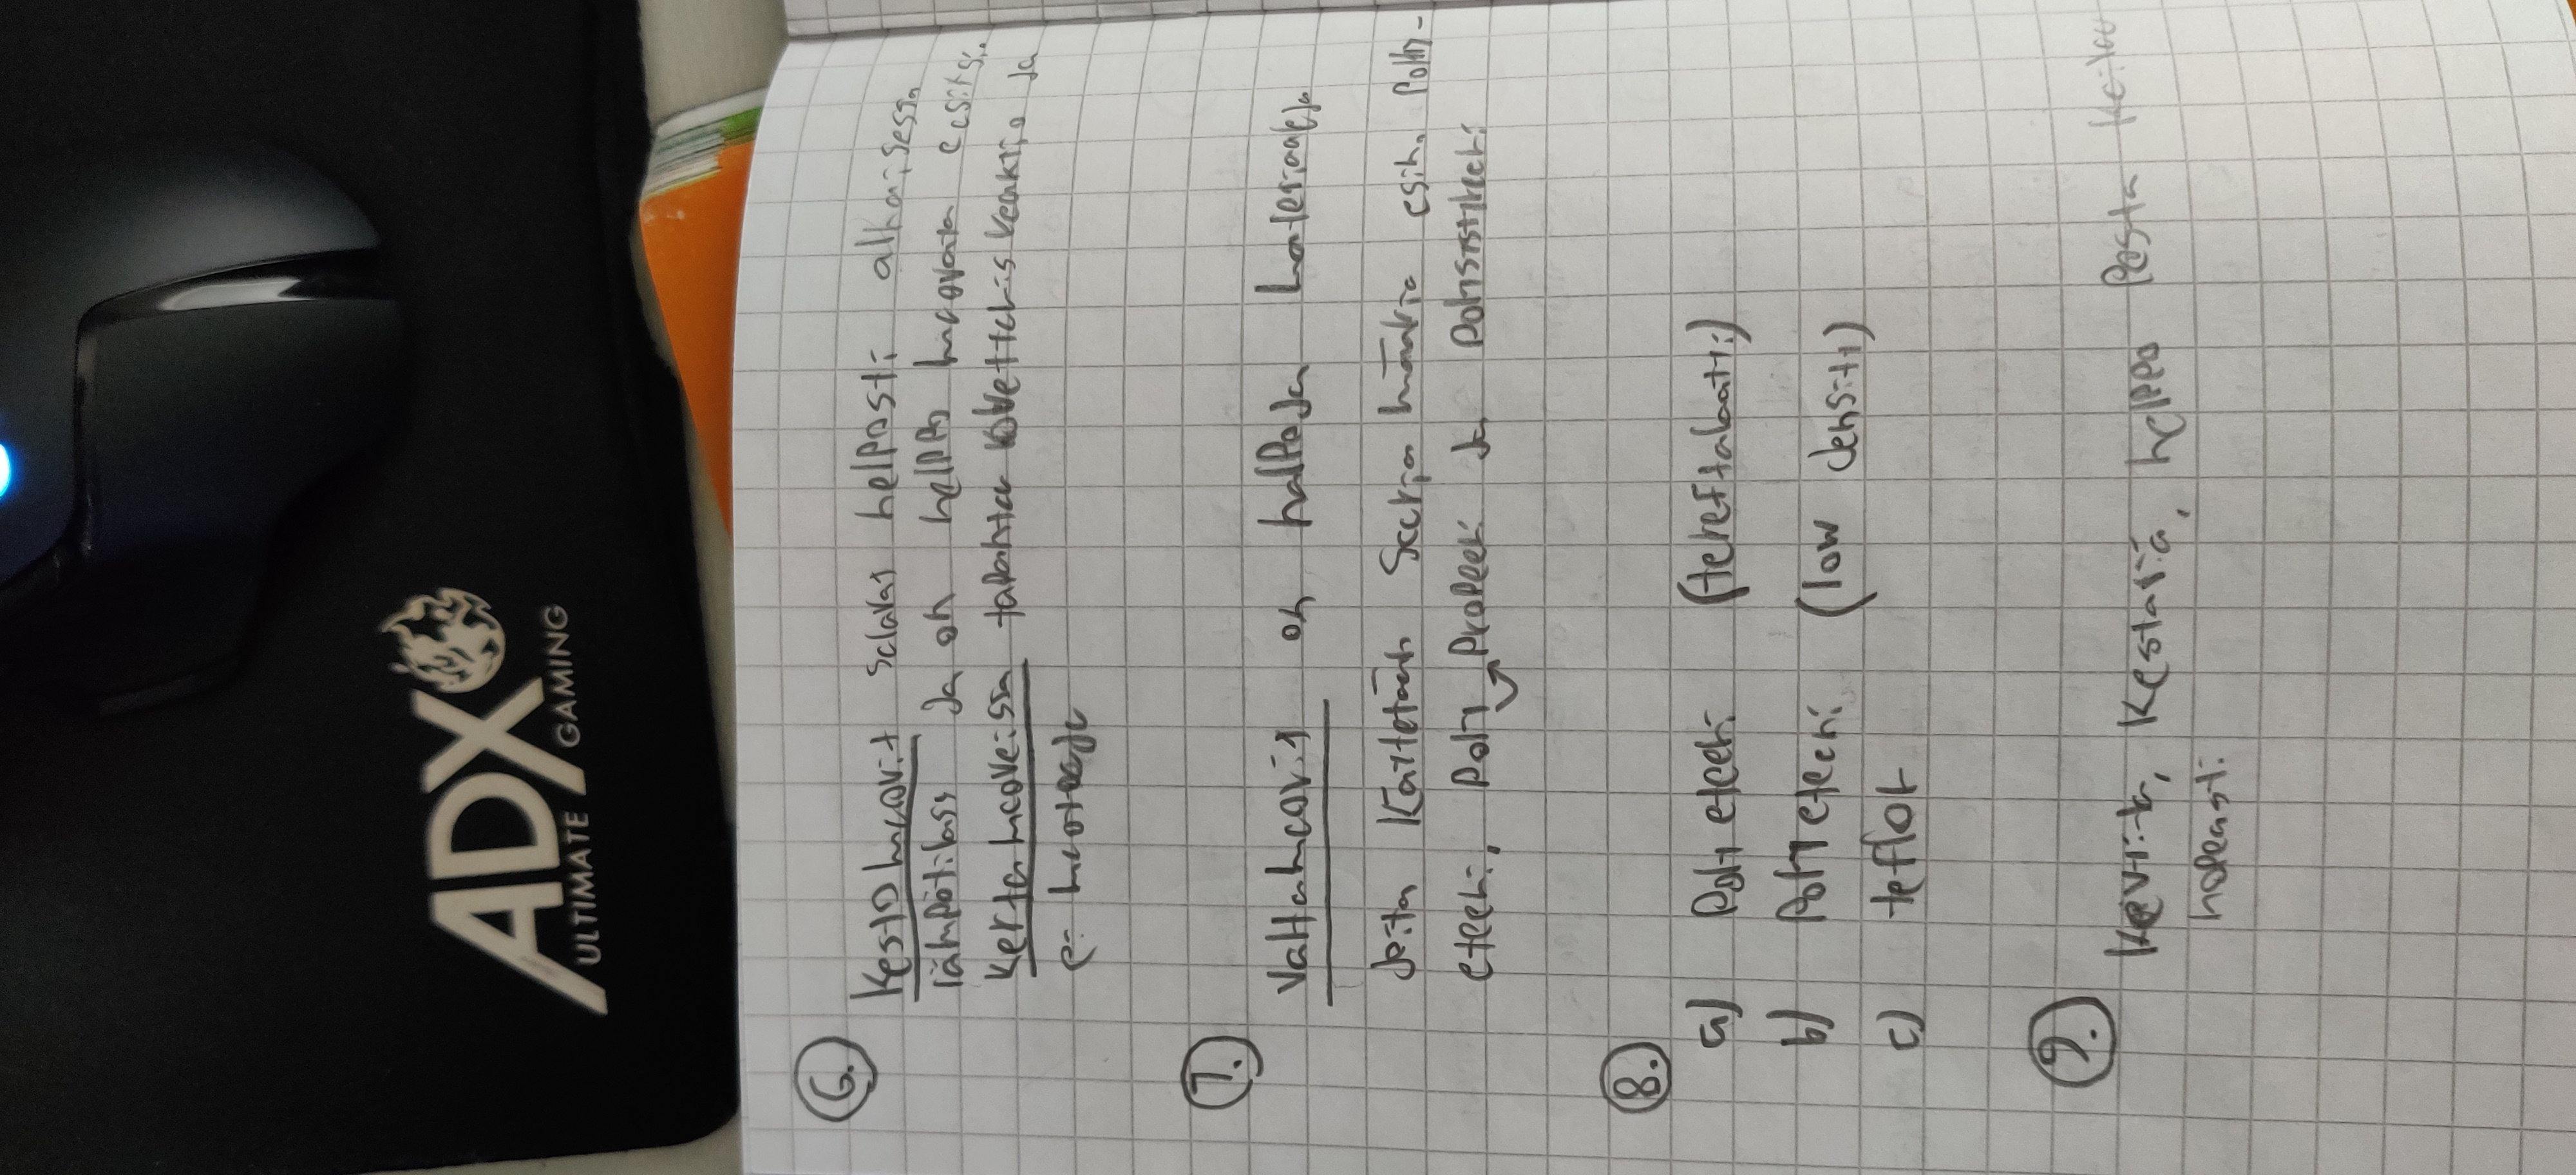 ADX
ULTIMATE GAMING
6.
Kestomuovit sulavat helposti alhaisessa
lämpötilass Ja on helppo muovata uusiksi.
Kertamuoveissa tapahtuu kovettumisreaktio Ja
ei muotoudu
7.
Valtamuovit on halpoja materiaaleja
Joita käytetään suuria määriä esim. Poly-
eteeni, Poly Propeeni Ja Polystyreeni
8.
a) Poly eteeni (tereftalaatti)
b) Poly eteeni (low density)
c) teflon
9.
Kevyitä, Kestäviä, helppo Pestä
nopeasti